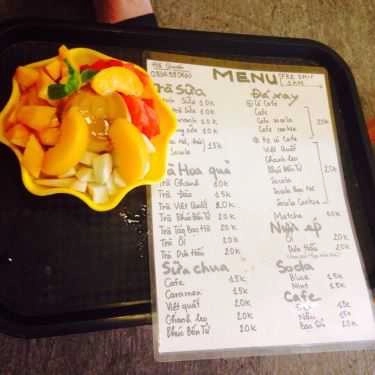 MENU
FREE SHIP
1 KM
Trà Sữa
10k
10k
10k
10k
15k
Socola 15k
Đá xay
Cafe
Cafe socola
Cafe cookie
25k
Việt Quất
Chanh leo
Phúc Bồn Tử
Socola
Socola Bạc Hà
Socola Cookie
25k
Matcha 30k
Trà Hoa quả
Trà Chanh 10k
Trà Đào 15k
Trà Việt Quất 20k
Trà Phúc Bồn Tử 20k
Trà Táo Bạc Hà 20k
Trà Ổi 20k
Trà Dưa Hấu 20k
Nước ép
Ổi 20k
Dưa Hấu 20k
Sữa chua
Cafe 15k
Caramen 15k
Việt quất 20k
Chanh leo 20k
Phúc Bồn Tử 20k
Soda
Blue 15k
Mint 15k
Cafe
15k
Nâu 15k
Bạc Sỉu 20k